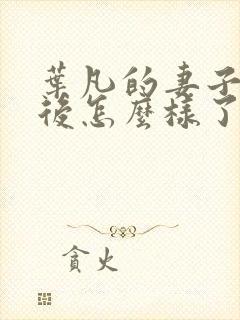 葉凡的妻子
後怎麼樣了
貪火